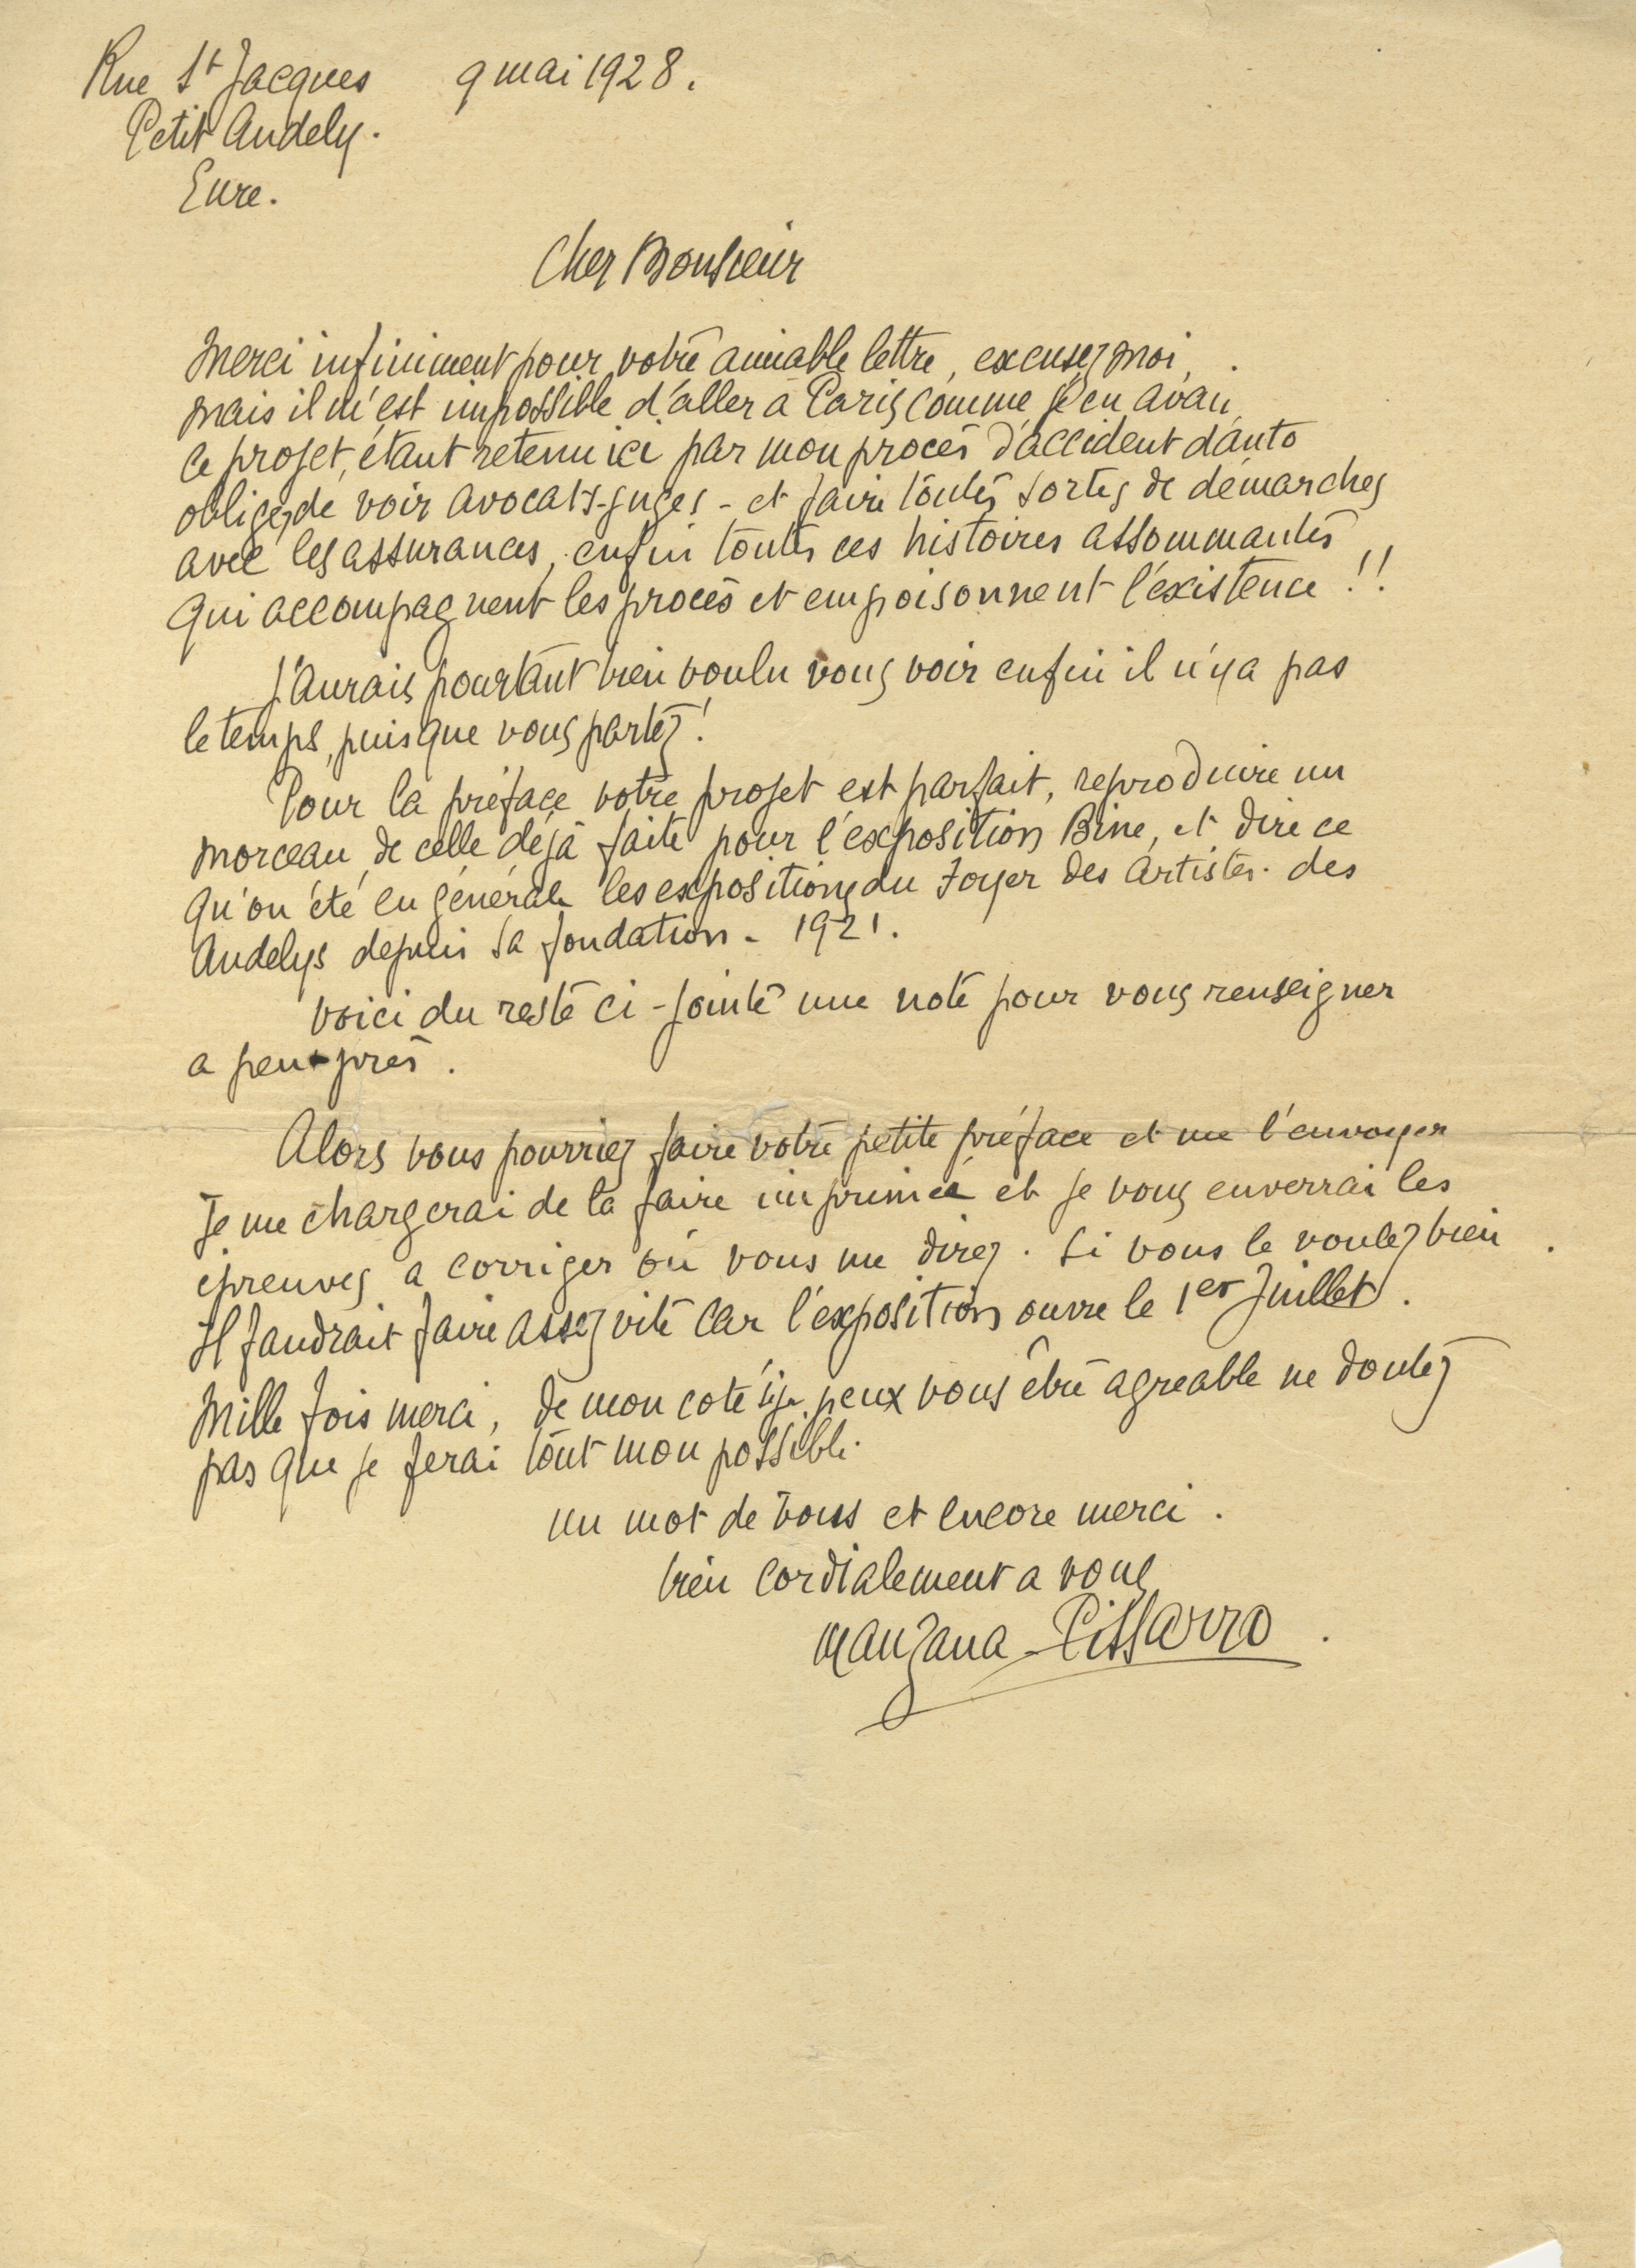 Rue St Jacques 9 mai 1928.
Petit Andely.
Eure.
Cher Monsieur
Merci infiniment pour votre aimable lettre, excusez moi,
mais il m'est impossible d'aller à Paris comme j'en avais
ce projet, étant retenu ici par mon procès d'accident d'auto
obligé de voir avocats-juges - et faire toutes sortes de démarches
avec les assurances, enfin toutes ces histoires assommantes
qui accompagnent les procès et empoisonnent l'existence !!
J'aurais pourtant bien voulu vous voir enfin il n'y a pas
le temps, puisque vous partez !
Pour la préface votre projet est parfait, reproduire un
morceau de celle déjà faite pour l'exposition Bine, et dire ce
qu'on été en général les expositions du Foyer des Artistes. des
Andelys depuis sa fondation - 1921.
Voici du reste ci-jointe une note pour vous renseigner
a peu près.
Alors vous pourriez faire votre petite préface et me l'envoyer
Je me chargerai de la faire et je vous enverrai les
épreuves a corriger où vous me direz. Si vous le voulez bien.
Il faudrait faire assez vite car l'exposition ouvre le 1er Juillet.
Mille fois merci, de mon coté si je peux vous être agreable ne doutez
pas que je ferai tout mon possible.
un mot de vous et encore merci.
bien cordialement a vous
Manzana-Pissarro.